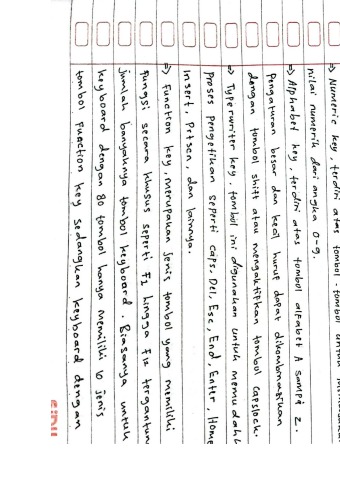 => Numeric key, terdiri atas tombol-tombol untuk
nilai numerik dari angka 0-9.
=> Alphabet key, terdiri atas tombol alfabet A sampe z.
Pengaturan besar dan kecil huruf dapat dikombinasikan
dengan tombol shift atau mengaktifkan tombol capslock.
=> Typerwriter key. tombol ini digunakan untuk memudahk
proses pengetikan seperti caps, Del, Esc, End, Enter, Home
Insert, Prtscn, dan lainnya.
=> Function key, merupakan jenis tombol yang memiliki
fungsi secara khusus seperti F1 hingga F12 tergantun
jumlah banyaknya tombol keyboard. Biasanya untuk
keyboard dengan 80 tombol hanya memiliki 10 jenis
tombol function key sedangkan keyboard dengan